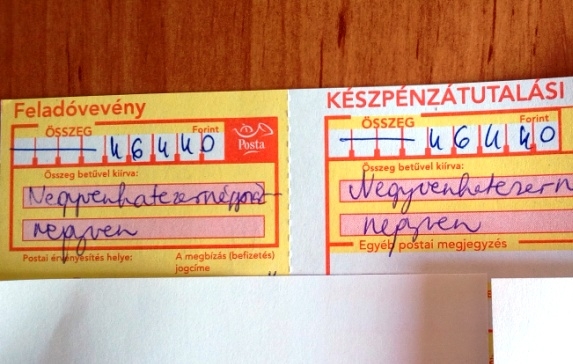 Feladóvevény
ÖSSZEG
Forint
46440
Posta
Összeg betűvel kiírva:
Negyvenhatezernégyszáz-
negyven
Postai érvényesítés helye:
A megbízás (befizetés)
jogcíme
KÉSZPÉNZÁTUTALÁSI
ÖSSZEG
Forint
46440
Összeg betűvel kiírva:
Negyvenhatezern
negyven
Egyéb postai megjegyzés